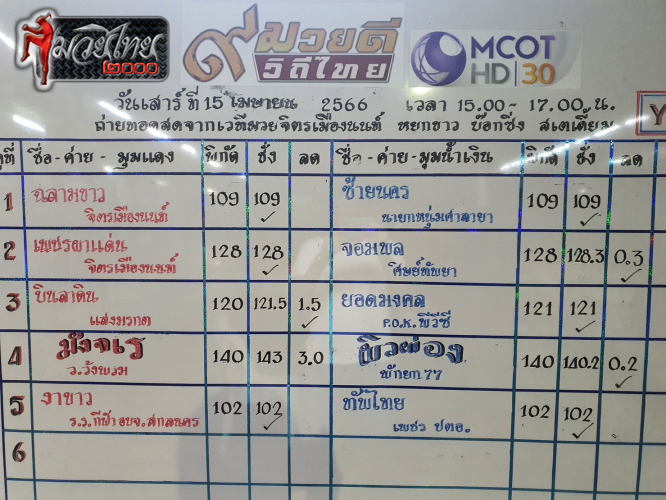 มวยไทย
2000
๙มวยดี
วิถีไทย
MCOT
HD 30
วันเสาร์ ที่ 15 เมษายน 2566 เวลา 15.00 - 17.00 น.
ถ่ายทอดสดจากเวทีมวยจิตรเมืองนนท์ หยกขาว บ๊อกซิ่ง สเตเดี้ยม
คู่ที่ ชื่อ - ค่าย - มุมแดง พิกัด ชั่ง ลด ชื่อ - ค่าย - มุมน้ำเงิน พิกัด ชั่ง ลด
1 ฉลามขาว 109 109 ซ้ายนคร 109 109
จิตรเมืองนนท์ นายกหนุ่มศาลายา
2 เพชรผาแด่น 128 128 จอมพล 128 128.3 0.3
จิตรเมืองนนท์ ศิษย์ทัพยา
3 บินลาดิน 120 121.5 1.5 ยอดมงคล 121 121
แสงมรกต P.O.K. พีวีซี
4 มังจเร 140 143 3.0 ผิวผ่อง 140 140.2 0.2
ว.วังพรม พักยก 77
5 งาขาว 102 102 ทัพไทย 102 102
ร.ร.กีฬา อบจ.สกลนคร เพชร ปตอ.
6